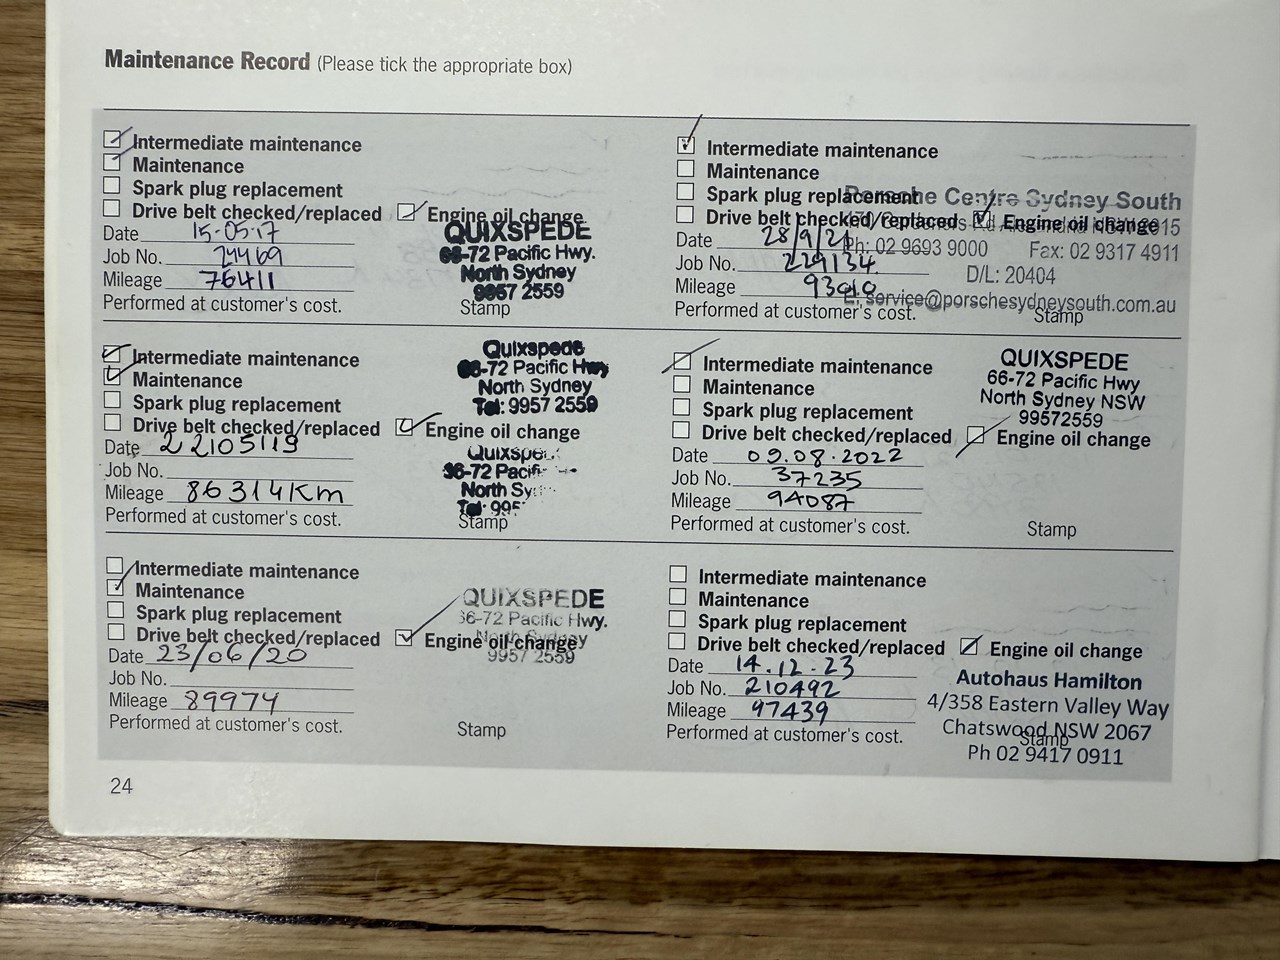 Maintenance Record (Please tick the appropriate box)
Intermediate maintenance
Maintenance
Spark plug replacement
Drive belt checked/replaced Engine oil change
Date 15-05-17
Job No. 27469
Mileage 76411
Performed at customer's cost.
QUIXSPEDE
66-72 Pacific Hwy.
North Sydney
9957 2559
Stamp
Intermediate maintenance
Maintenance
Spark plug replacement
Drive belt checked/replaced Engine oil change
Date
Job No.
Mileage 86314Km
Performed at customer's cost.
Quixspede
66-72 Pacific Hwy
North Sydney
Tel: 9957 2559
Stamp
Intermediate maintenance
Maintenance
Spark plug replacement
Drive belt checked/replaced Engine oil change
Date 23/06/20
Job No.
Mileage 89974
Performed at customer's cost.
QUIXSPEDE
66-72 Pacific Hwy.
North Sydney
9957 2559
Stamp
24
Intermediate maintenance
Maintenance
Spark plug replacement
Drive belt checked/replaced Engine oil change
Date 28/9/21
Job No. 229134
Mileage
Performed at customer's cost.
Porsche Centre Sydney South
Ph: 02 9693 9000 Fax: 02 9317 4911
D/L: 20404
E: service@porschesydneysouth.com.au
Stamp
Intermediate maintenance
Maintenance
Spark plug replacement
Drive belt checked/replaced Engine oil change
Date 09.08.2022
Job No. 37235
Mileage 94087
Performed at customer's cost.
QUIXSPEDE
66-72 Pacific Hwy
North Sydney NSW
99572559
Stamp
Intermediate maintenance
Maintenance
Spark plug replacement
Drive belt checked/replaced Engine oil change
Date 14.12.23
Job No. 210492
Mileage 97439
Performed at customer's cost.
Autohaus Hamilton
4/358 Eastern Valley Way
Chatswood NSW 2067
Ph 02 9417 0911
Stamp